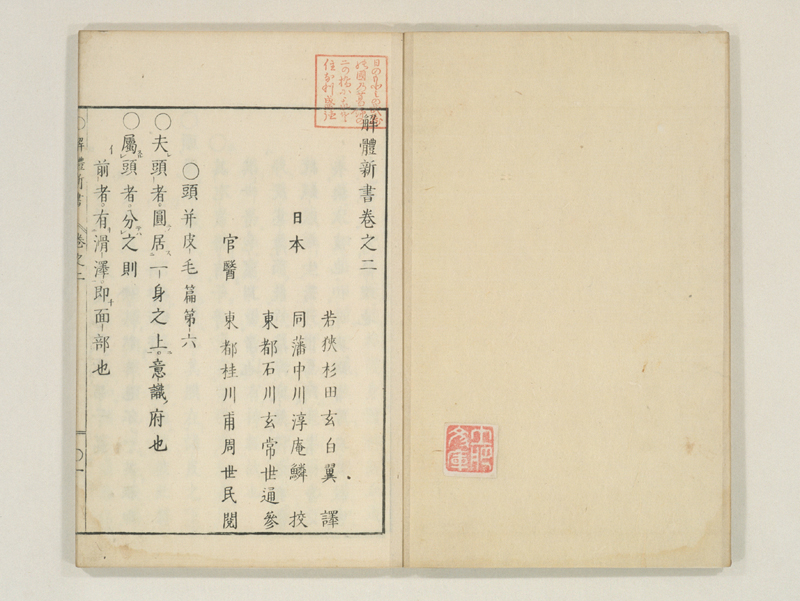 解體新書卷之二
若狹杉田玄白翼譯
日本
同藩中川淳庵鱗挍
東都石川玄常世通參
官醫
東都桂川甫周世民閲
〇頭并皮毛篇第六
〇夫頭者圓居一身之上意識府也
〇屬頭者分之則
前者有滑澤即面部也
〇解體新書
卷之二
〇一
文庫